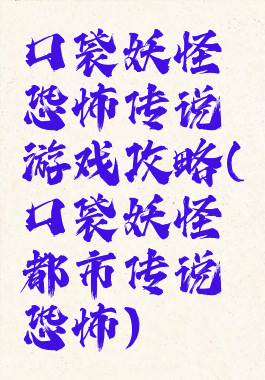 口袋妖怪
恐怖传说
游戏攻略(
口袋妖怪
都市传说
恐怖)